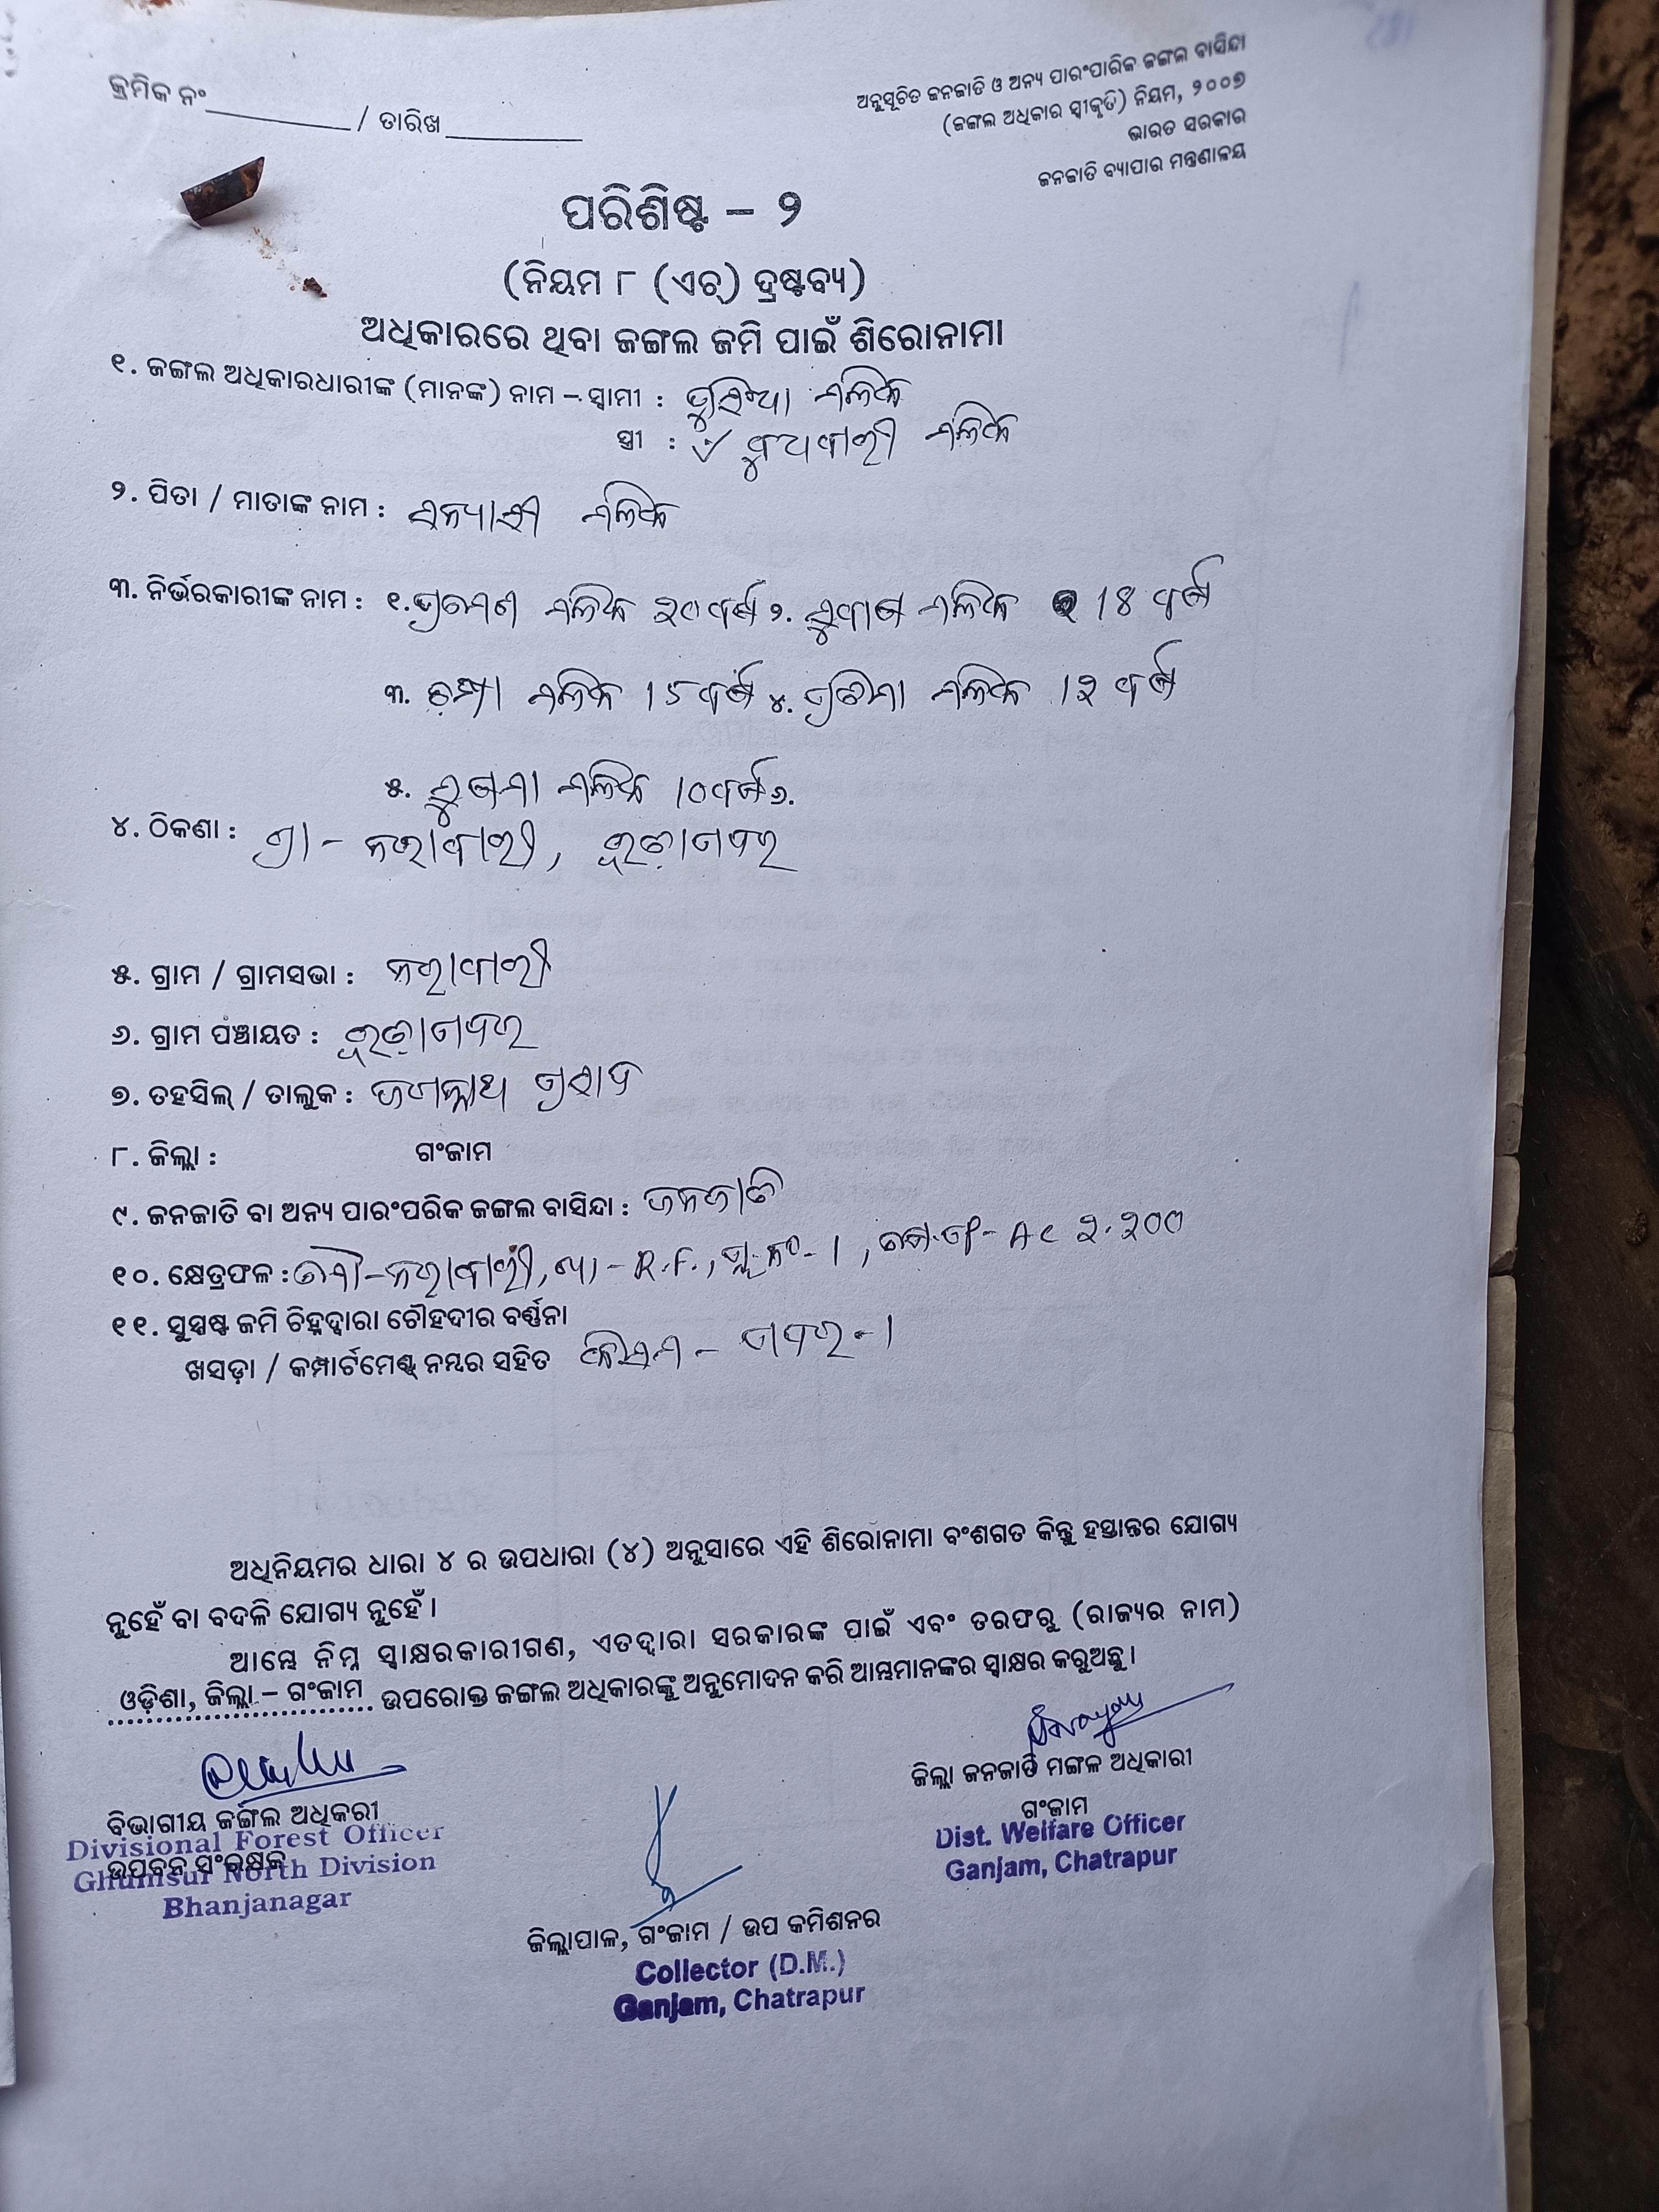 କ୍ରମିକ ନଂ / ତାରିଖ
ଅନୁସୂଚିତ ଜନଜାତି ଓ ଅନ୍ୟ ପାରଂପାରିକ ଜଙ୍ଗଲ ବାସିନ୍ଦା
(ଜଙ୍ଗଲ ଅଧିକାର ସ୍ୱୀକୃତି) ନିୟମ, ୨୦୦୭
ଭାରତ ସରକାର
ଜନଜାତି ବ୍ୟାପାର ମନ୍ତ୍ରଣାଳୟ
ପରିଶିଷ୍ଟ – ୨
(ନିୟମ ୮ (ଏଚ୍) ଦ୍ରଷ୍ଟବ୍ୟ)
ଅଧିକାରରେ ଥିବା ଜଙ୍ଗଲ ଜମି ପାଇଁ ଶିରୋନାମା
୧. ଜଙ୍ଗଲ ଅଧିକାରଧାରୀଙ୍କ (ମାନଙ୍କ) ନାମ – ସ୍ୱାମୀ :
ସ୍ତ୍ରୀ :
୨. ପିତା / ମାତାଙ୍କ ନାମ : ସନ୍ୟାସୀ ମଲିକ
୩. ନିର୍ଭରକାରୀଙ୍କ ନାମ : ୧. ମଲିକ ୨୦ ବର୍ଷ ୨. ସୁବାଷ ମଲିକ 18 ବର୍ଷ
୩. ଚମ୍ପା ମଲିକ 15 ବର୍ଷ ୪. ପ୍ରତିମା ମଲିକ 1୨ ବର୍ଷ
୫. ସୁଷମା ମଲିକ 10 ବର୍ଷ ୬.
୪. ଠିକଣା : ଗ୍ରା –
୫. ଗ୍ରାମ / ଗ୍ରାମସଭା :
୬. ଗ୍ରାମ ପଞ୍ଚାୟତ :
୭. ତହସିଲ୍ / ତାଲୁକ : ଜଗନ୍ନାଥ ପ୍ରସାଦ
୮. ଜିଲ୍ଲା : ଗଂଜାମ
୯. ଜନଜାତି ବା ଅନ୍ୟ ପାରଂପରିକ ଜଙ୍ଗଲ ବାସିନ୍ଦା : ଜନଜାତି
୧୦. କ୍ଷେତ୍ରଫଳ : ମୌ – R.F., ପ୍ଲ.ନଂ - 1, Ac ୨.୨୦୦
୧୧. ସୁସ୍ପଷ୍ଟ ଜମି ଚିହ୍ନଦ୍ୱାରା ଚୌହଦୀର ବର୍ଣ୍ଣନା
ଖସଡ଼ା / କମ୍ପାର୍ଟମେଣ୍ଟ ନମ୍ବର ସହିତ କିସମ –
ଅଧିନିୟମର ଧାରା ୪ ର ଉପଧାରା (୪) ଅନୁସାରେ ଏହି ଶିରୋନାମା ବଂଶଗତ କିନ୍ତୁ ହସ୍ତାନ୍ତର ଯୋଗ୍ୟ
ନୁହେଁ ବା ବଦଳି ଯୋଗ୍ୟ ନୁହେଁ ।
ଆମ୍ଭେ ନିମ୍ନ ସ୍ୱାକ୍ଷରକାରୀଗଣ, ଏତଦ୍ୱାରା ସରକାରଙ୍କ ପାଇଁ ଏବଂ ତରଫରୁ (ରାଜ୍ୟର ନାମ)
ଓଡ଼ିଶା, ଜିଲ୍ଲା – ଗଂଜାମ ଉପରୋକ୍ତ ଜଙ୍ଗଲ ଅଧିକାରଙ୍କୁ ଅନୁମୋଦନ କରି ଆମ୍ଭମାନଙ୍କର ସ୍ୱାକ୍ଷର କରୁଅଛୁ ।
ଜିଲ୍ଲା ଜନଜାତି ମଙ୍ଗଳ ଅଧିକାରୀ
ଗଂଜାମ
Dist. Welfare Officer
Ganjam, Chatrapur
ବିଭାଗୀୟ ଜଙ୍ଗଲ ଅଧିକରୀ
Divisional Forest Officer
ଉପବନ ସଂରକ୍ଷକ
Ghumsur North Division
Bhanjanagar
ଜିଲ୍ଲାପାଳ, ଗଂଜାମ / ଉପ କମିଶନର
Collector (D.M.)
Ganjam, Chatrapur